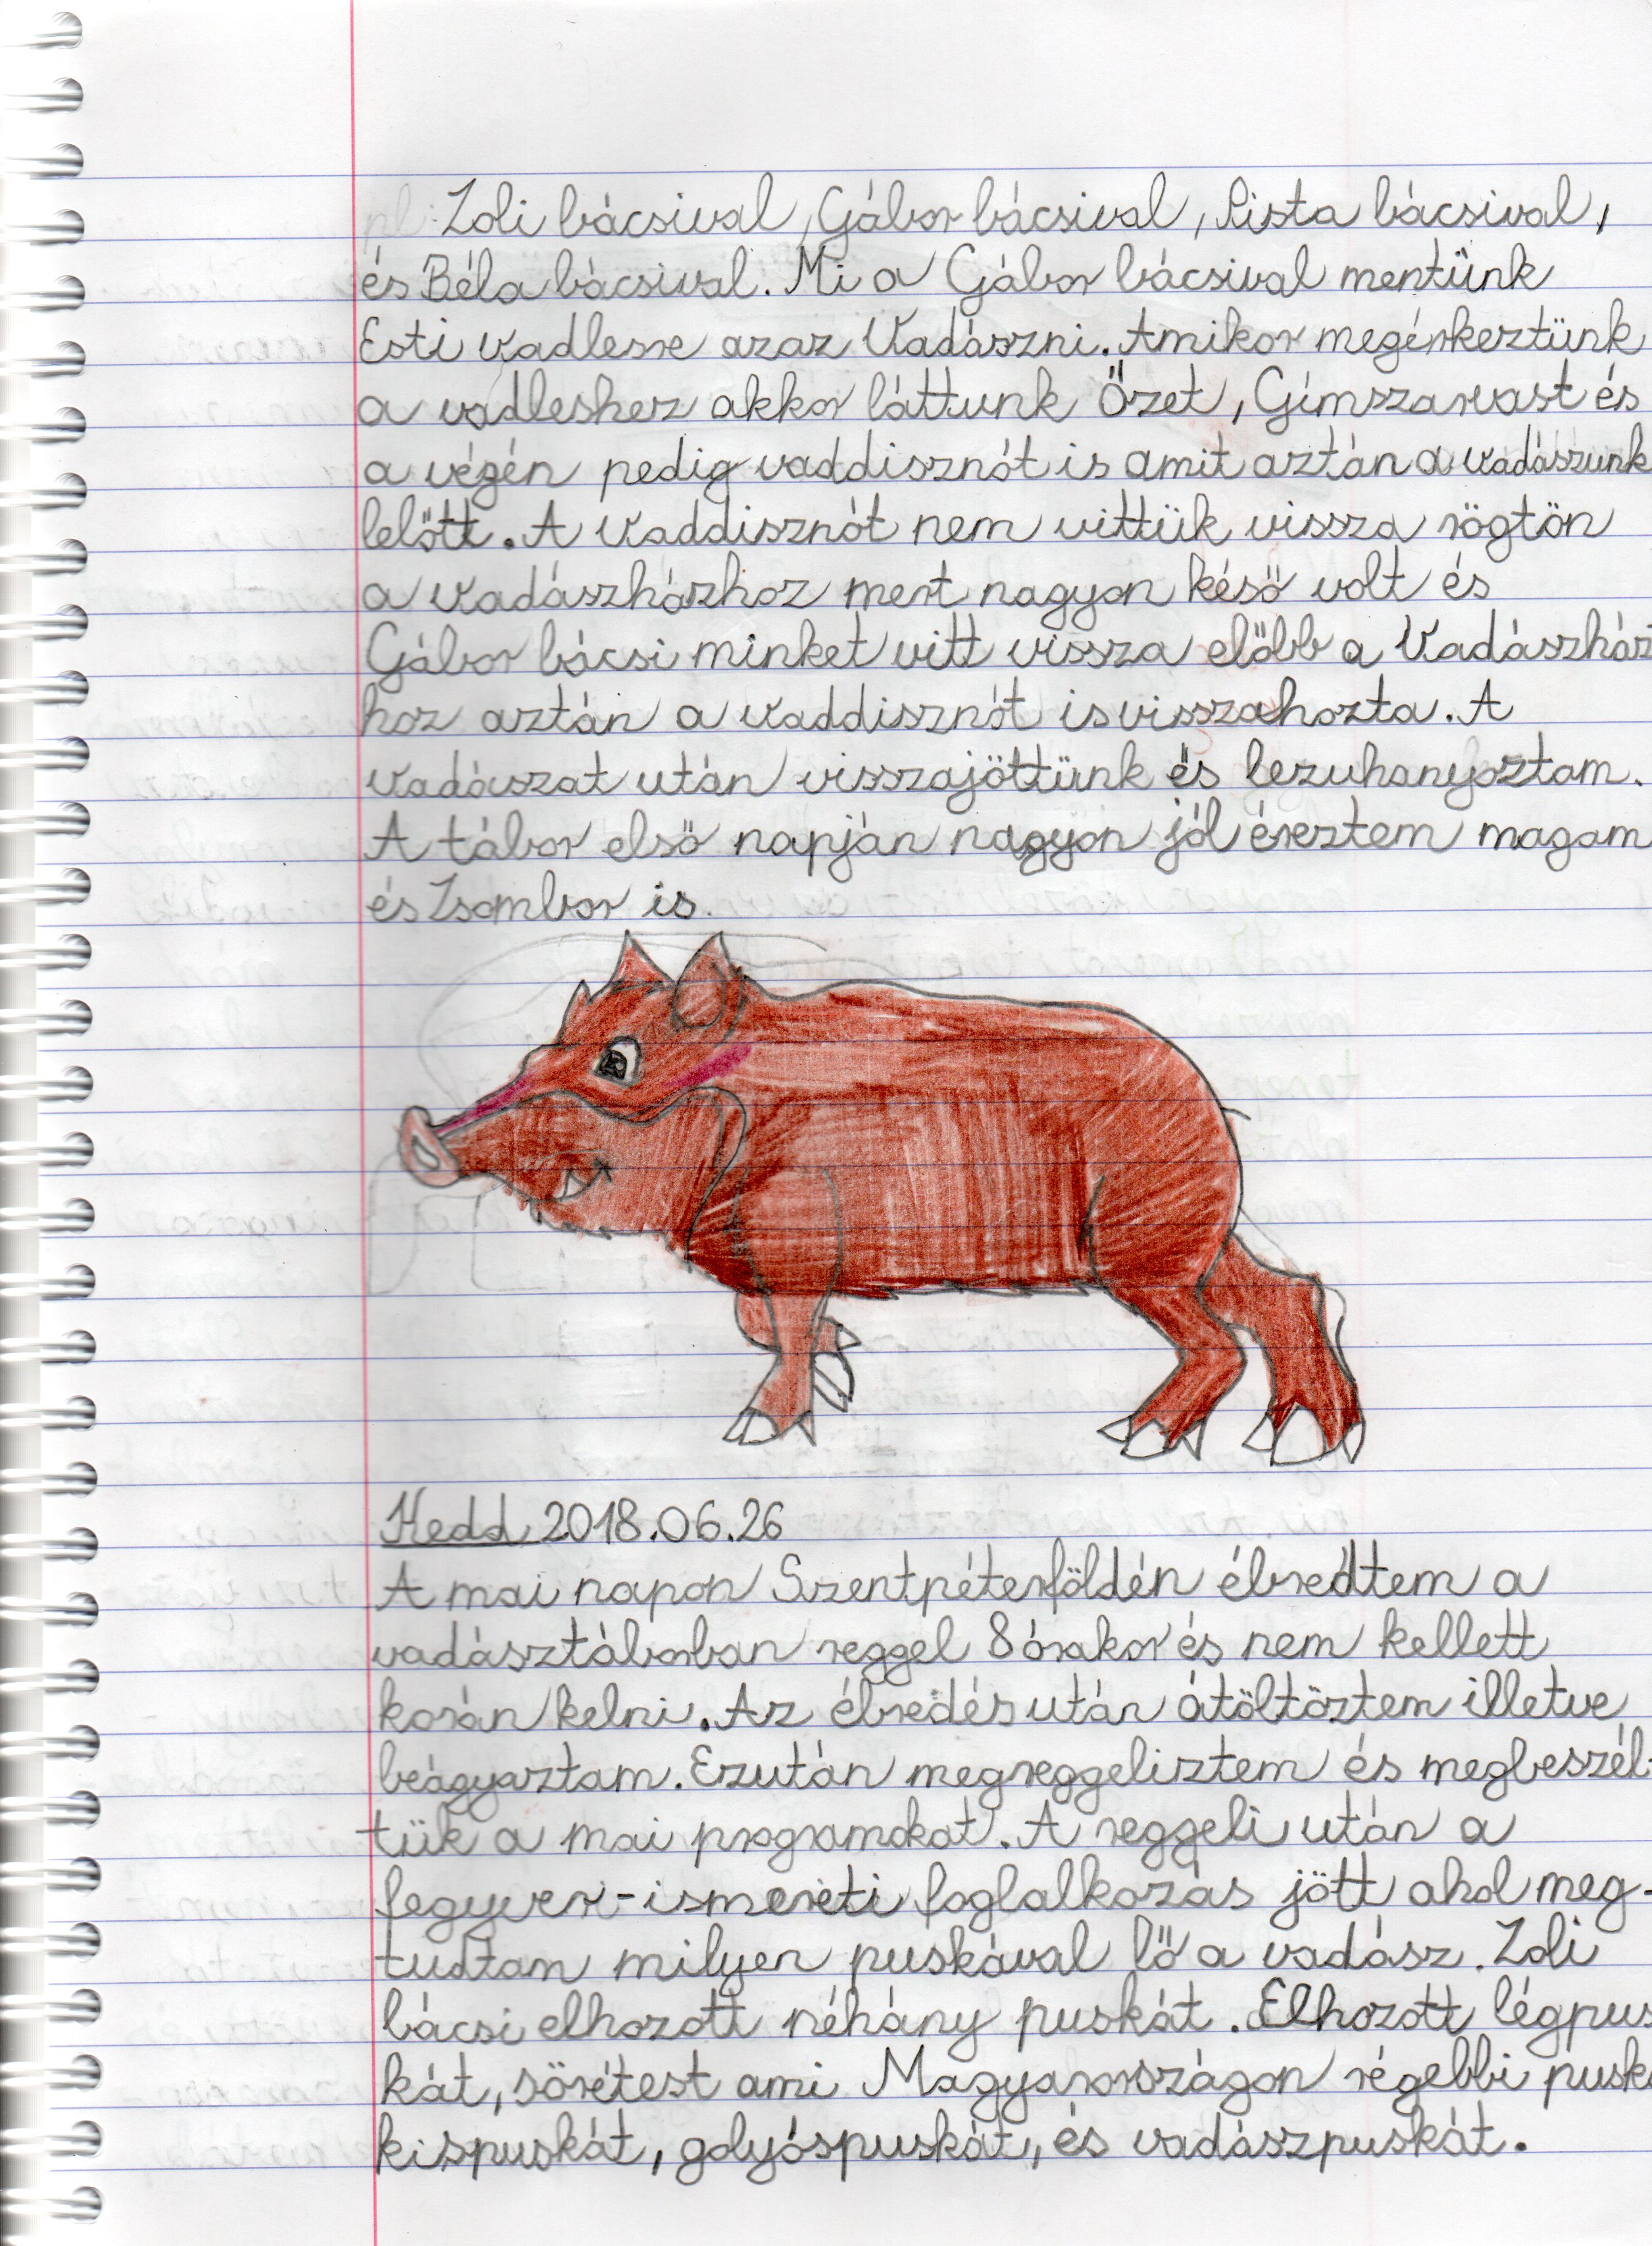 pl: Zoli bácsival, Gábor bácsival, Pista bácsival,
és Béla bácsival. Mi a Gábor bácsival mentünk
Esti vadlesre azaz Vadászni. Amikor megérkeztünk
a vadleshez akkor láttunk Őzet, Gímszarvast és
a végén pedig vaddisznót is amit aztán a vadászunk
lelőtt. A vaddisznót nem vittük vissza rögtön
a vadászházhoz mert nagyon késő volt és
Gábor bácsi minket vitt vissza előbb a Vadászház
hoz aztán a vaddisznót is visszahozta. A
vadászat után visszajöttünk és lezuhanyoztam.
A tábor első napján nagyon jól éreztem magam
és Zsombor is.
Hedd 2018.06.26
A mai napon Szentpéterföldén ébredtem a
vadásztáborban reggel 8 órakor és nem kellett
korán kelni. Az ébredés után átöltöztem illetve
beágyaztam. Ezután megreggeliztem és megbeszél-
tük a mai programokat. A reggeli után a
fegyver-ismereti foglalkozás jött ahol meg-
tudtam milyen puskával lő a vadász. Zoli
bácsi elhozott néhány puskát. Elhozott légpus
kát, sörétest ami Magyarországon régebbi puska
kispuskát, golyóspuskát, és vadászpuskát.